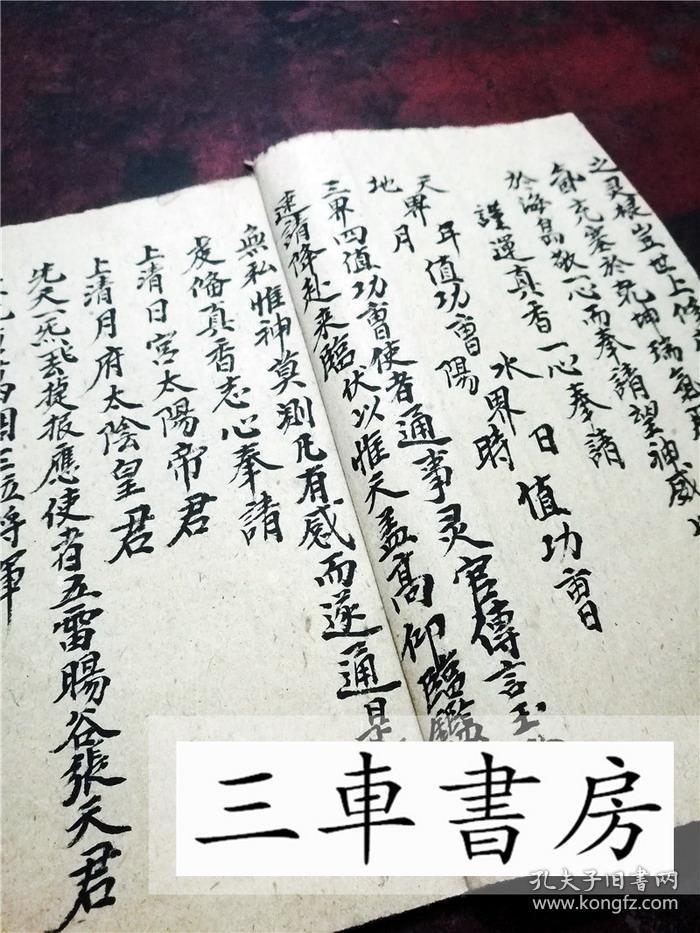 之灵樣岂世上修
氤充塞於乾坤瑞氤
於海島敬一心而奉請望神威
謹運真香一心奉請
天界 年值功曹陽 水界時 日值功曹
地 月
三界四值功曹使者通事灵官傳言玉
速請降赴来臨伏以惟天盖高仰臨鑑
無私惟神莫測凡有感而遂通是
俻真香志心奉請
上清日宮太陽帝君
上清月府太陰皇君
先天一炁捷报應使者五雷暘谷張天君
三位將軍
三車書房
孔夫子旧书网
www.kongfz.com